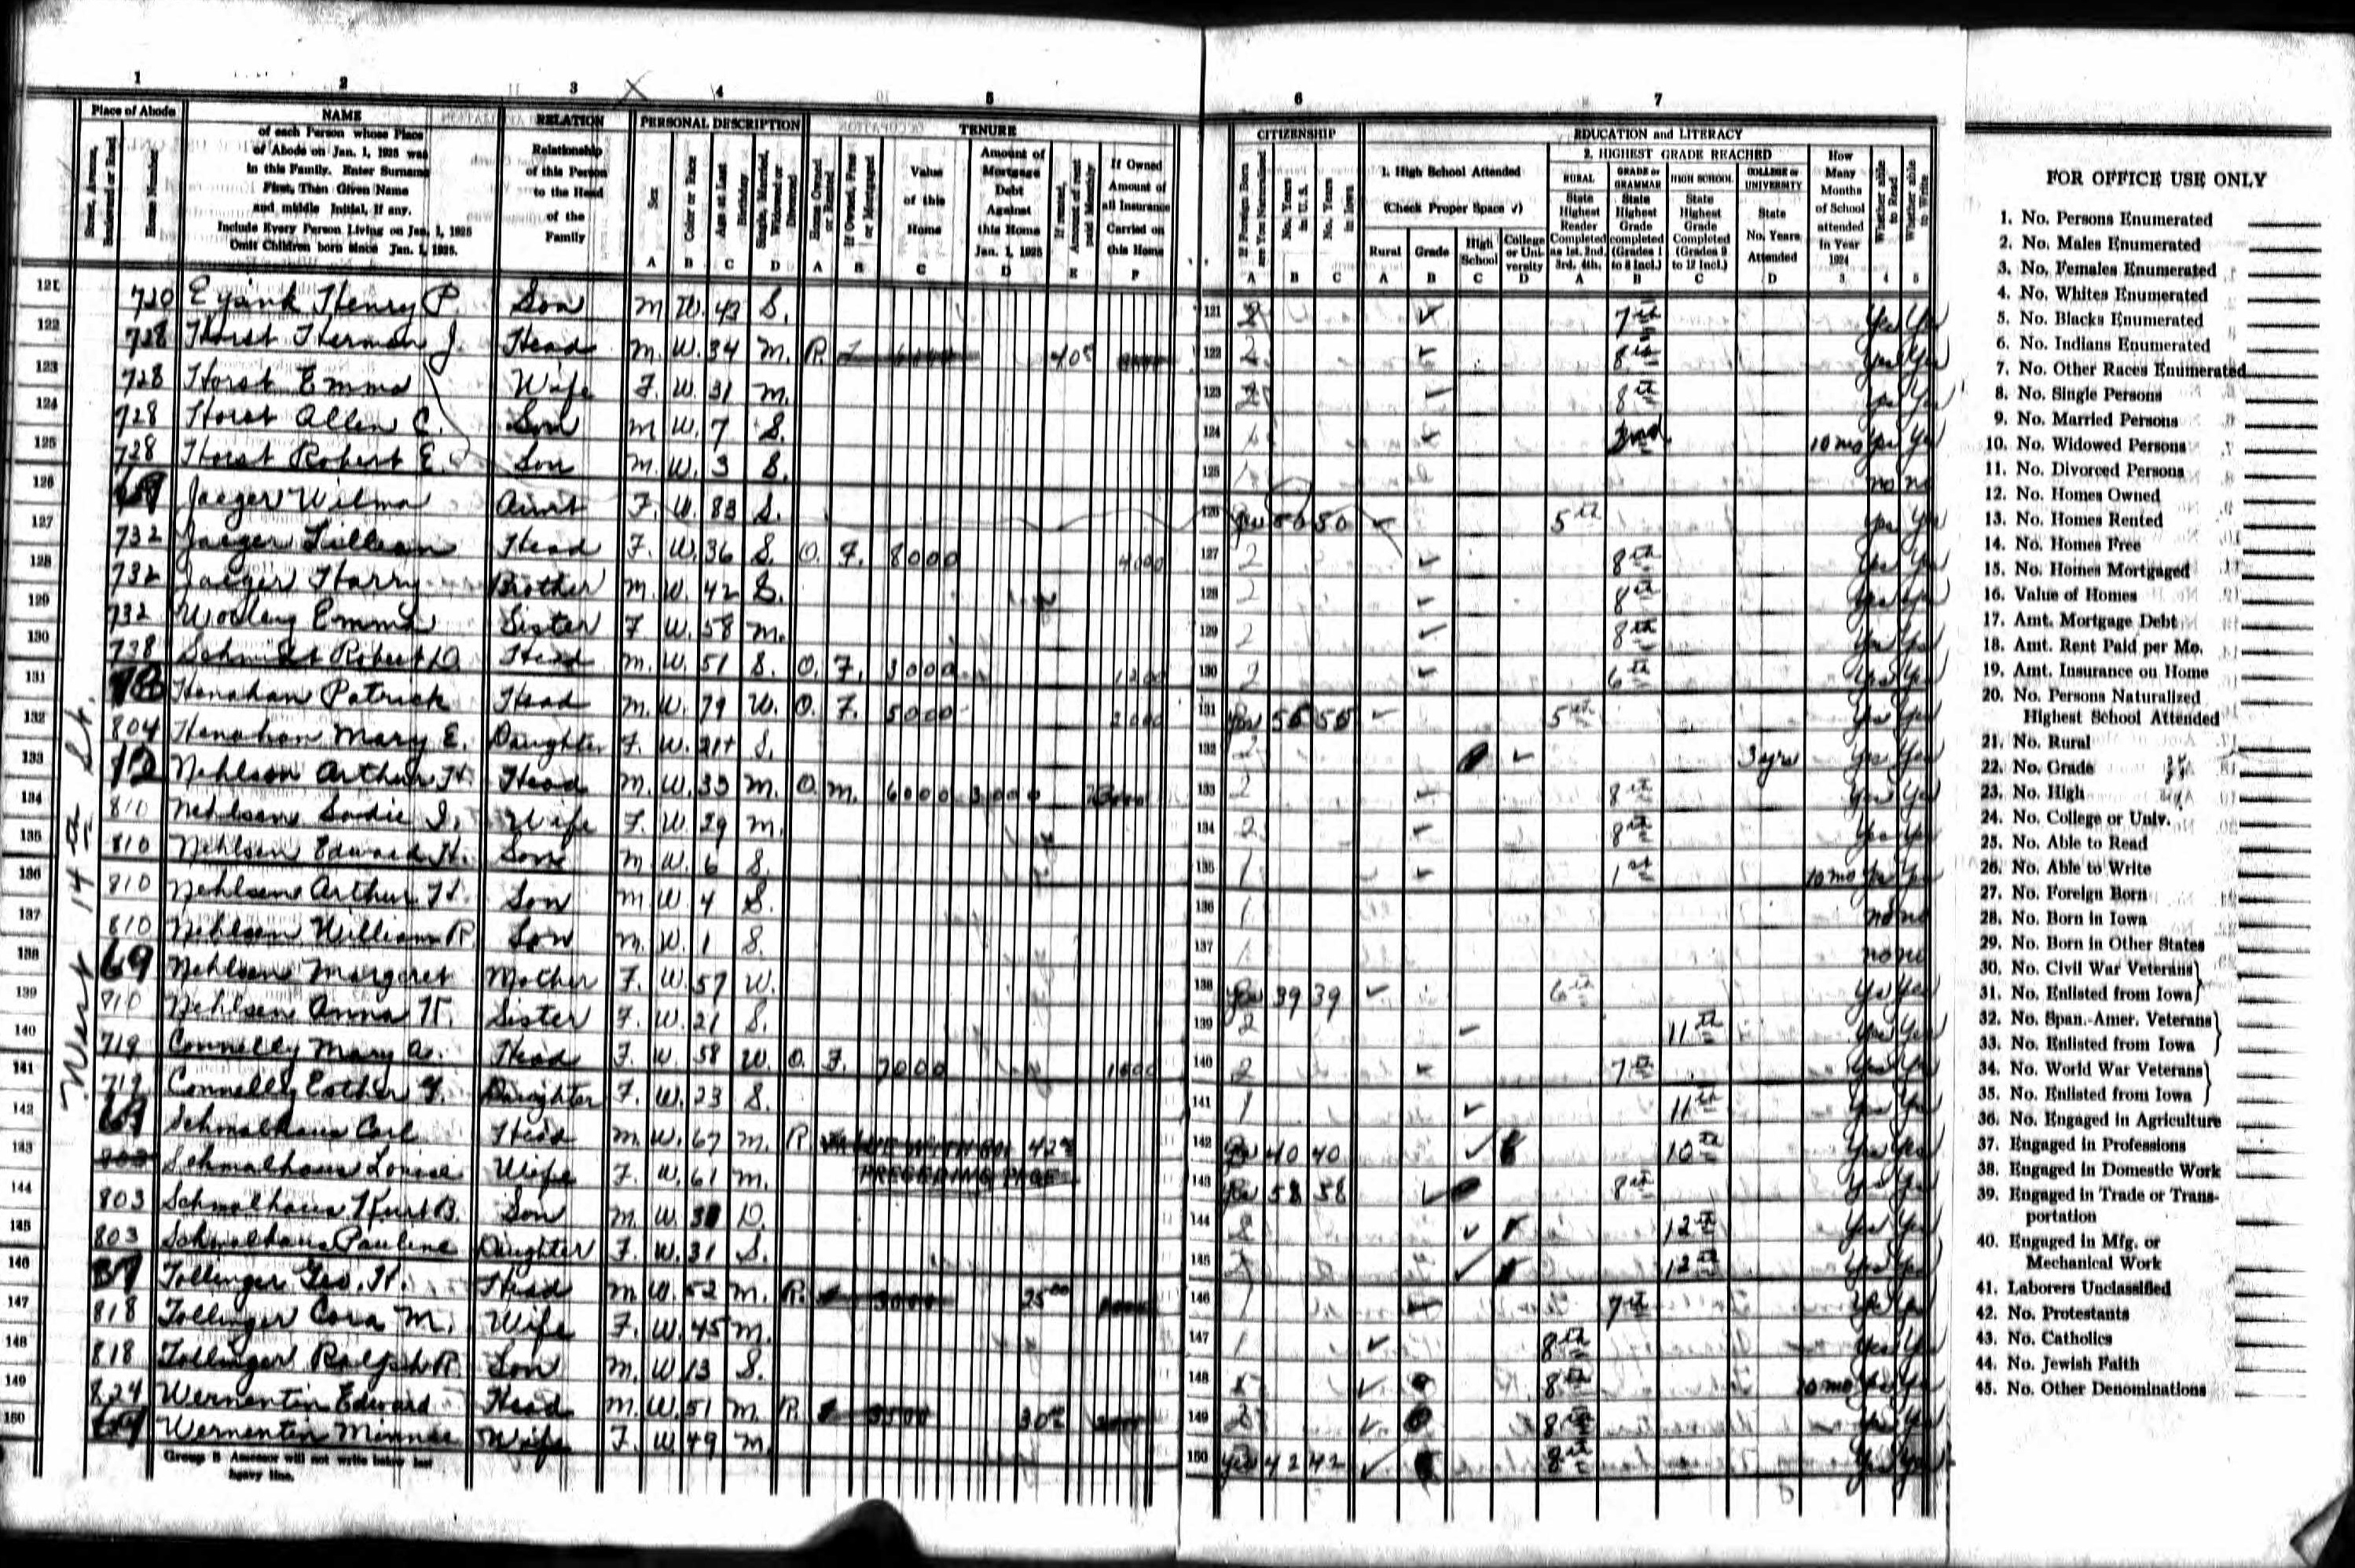 1 2 3 4 5 6 7
Place of Abode NAME RELATION PERSONAL DESCRIPTION TENURE CITIZENSHIP EDUCATION and LITERACY
Street, Avenue, Boulevard or Road
House Number
of each Person whose Place
of Abode on Jan. 1, 1925 was
in this Family. Enter Surname
First, Then Given Name
and middle Initial, if any.
Include Every Person Living on Jan. 1, 1925
Omit Children born since Jan. 1, 1925.
Relationship
of this Person
to the Head
of the
Family
Sex A
Color or Race B
Age at Last Birthday C
Single, Married, Widowed or Divorced D
Home Owned or Rented A
If Owned, Free or Mortgaged B
Value of this Home C
Amount of Mortgage Debt Against this Home Jan. 1, 1925 D
If rented, Amount of rent paid Monthly E
If Owned Amount of all Insurance Carried on this Home F
If Foreign Born are You Naturalized A
No. Years in U.S. B
No. Years in Iowa C
1. High School Attended
(Check Proper Space √)
Rural A Grade B High School C College or University D
2. HIGHEST GRADE REACHED
RURAL State Highest Reader Completed as 1st, 2nd, 3rd, 4th. A
GRADE or GRAMMAR State Highest Grade completed (Grades 1 to 8 Incl.) B
HIGH SCHOOL State Highest Grade Completed (Grades 9 to 12 Incl.) C
COLLEGE or UNIVERSITY State No. Years Attended D
How Many Months of School attended in Year 1924 3
Whether able to Read 4
Whether able to Write 5
West 14th St.
121 720 Henry P. Son M W. 43 S. 7th Yes Yes
122 728 Horst Herman J. Head M. W. 34 M. R. 40 2 8th Yes Yes
123 728 Horst Emma Wife F. W. 31 M. 2 8th Yes Yes
124 728 Horst Allen C. Son M W. 7 S. 1 10 mo Yes Yes
125 728 Horst Robert E. Son M. W. 3 S. 1 no no
126 Jaeger Wilma Aunt F. W. 83 S. Yes 50 5th Yes Yes
127 732 Jaeger Lillian Head F. W. 36 S. O. F. 8000 4000 2 8th Yes Yes
128 732 Jaeger Harry Brother M. W. 42 S. 2 8th Yes Yes
129 732 Emma Sister F W. 58 M. 2 8th Yes Yes
130 738 Schmidt Robert O. Head M. W. 51 S. O. F. 3000 1200 2 6th Yes Yes
131 Henahan Patrick Head M. W. 79 W. O. F. 5000 2000 Yes 55 5th Yes Yes
132 804 Henahan Mary E. Daughter F. W. 21+ S. 2 3 yrs Yes Yes
133 Nehlsen Arthur H. Head M. W. 33 M. O. M. 6000 3000 2 8th Yes Yes
134 810 Nehlsen Sadie I. Wife F. W. 29 M. 2 8th Yes Yes
135 810 Nehlsen Edward H. Son M W. 6 S. 1 1st 10 mo Yes Yes
136 810 Nehlsen Arthur H. Son M W. 4 S. 1 no no
137 810 Nehlsen William R Son M. W. 1 S. 1 no no
138 69 Nehlsen Margaret Mother F. W. 57 W. Yes 39 39 6th Yes Yes
139 810 Nehlsen Anna K. Sister F. W. 21 S. 2 11th Yes Yes
140 719 Connelly Mary A. Head F. W. 58 W. O. F. 7000 2 7th Yes Yes
141 719 Connelly Esther Y. Daughter F. W. 23 S. 1 11th Yes Yes
142 69 Schmalhaus Carl Head M. W. 67 M. R. 42 Yes 40 40 10th Yes Yes
143 Schmalhaus Louise Wife F. W. 61 M. PRECEDING PAGE Yes 58 58 8th Yes Yes
144 803 Schmalhaus Kurt B. Son M. W. D. 2 12th Yes Yes
145 803 Schmalhaus Pauline Daughter F. W. 31 S. 2 12th Yes Yes
146 Tollinger Geo. H. Head M. W. 52 M. R. 25.00 1 7th Yes Yes
147 818 Tollinger Cora M. Wife F. W. 45 M. 1 8th Yes Yes
148 818 Tollinger Ralph R. Son M. W 13 S. 1 8th 10 mo Yes Yes
149 824 Wernentin Edward Head M. W. 51 M. R. 30 2 8th Yes Yes
150 Wernentin Minnie Wife F. W 49 M. Yes 42 42 8th Yes Yes
Group B Assessor will not write below last
heavy line.
FOR OFFICE USE ONLY
1. No. Persons Enumerated
2. No. Males Enumerated
3. No. Females Enumerated
4. No. Whites Enumerated
5. No. Blacks Enumerated
6. No. Indians Enumerated
7. No. Other Races Enumerated
8. No. Single Persons
9. No. Married Persons
10. No. Widowed Persons
11. No. Divorced Persons
12. No. Homes Owned
13. No. Homes Rented
14. No. Homes Free
15. No. Homes Mortgaged
16. Value of Homes
17. Amt. Mortgage Debt
18. Amt. Rent Paid per Mo.
19. Amt. Insurance on Home
20. No. Persons Naturalized
Highest School Attended
21. No. Rural
22. No. Grade
23. No. High
24. No. College or Univ.
25. No. Able to Read
26. No. Able to Write
27. No. Foreign Born
28. No. Born in Iowa
29. No. Born in Other States
30. No. Civil War Veterans
31. No. Enlisted from Iowa
32. No. Span.-Amer. Veterans
33. No. Enlisted from Iowa
34. No. World War Veterans
35. No. Enlisted from Iowa
36. No. Engaged in Agriculture
37. Engaged in Professions
38. Engaged in Domestic Work
39. Engaged in Trade or Trans-
portation
40. Engaged in Mfg. or
Mechanical Work
41. Laborers Unclassified
42. No. Protestants
43. No. Catholics
44. No. Jewish Faith
45. No. Other Denominations